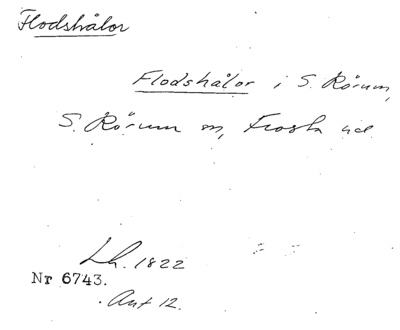 Flodshålor
Flodshålor i S. Rörum,
S. Rörum sn, Frosta hd.
Lh. 1822
Nr 6743.
Ant 12.